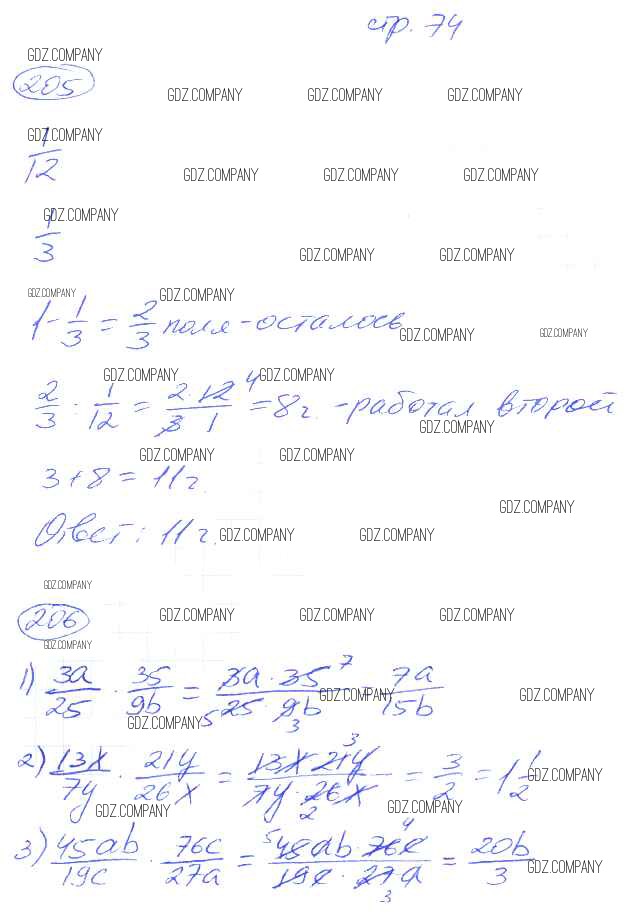 стр. 74
GDZ.COMPANY
205
GDZ.COMPANY GDZ.COMPANY GDZ.COMPANY
GDZ.COMPANY
1/12
GDZ.COMPANY GDZ.COMPANY GDZ.COMPANY
GDZ.COMPANY
1/3
GDZ.COMPANY GDZ.COMPANY
GDZ.COMPANY GDZ.COMPANY
1 - 1/3 = 2/3 поля - осталось
GDZ.COMPANY GDZ.COMPANY
GDZ.COMPANY GDZ.COMPANY
2/3 : 1/12 = 2 · 12 4 / 3 1 = 8 г. - работал второй
GDZ.COMPANY
GDZ.COMPANY GDZ.COMPANY
3 + 8 = 11 г.
GDZ.COMPANY
Ответ: 11 г.
GDZ.COMPANY GDZ.COMPANY
GDZ.COMPANY
206
GDZ.COMPANY GDZ.COMPANY GDZ.COMPANY
GDZ.COMPANY
1) 3a/25 · 35/9b = 3a · 35 7 / 5 25 · 9b 3 = 7a/15b
GDZ.COMPANY GDZ.COMPANY
GDZ.COMPANY
2) 13x/7y · 21y/26x = 13x · 21y 3 / 7y · 26x 2 = 3/2 = 1 1/2
GDZ.COMPANY
GDZ.COMPANY GDZ.COMPANY
3) 45ab/19c · 76c/27a = 5 45ab · 76c 4 / 19c · 27a 3 = 20b/3
GDZ.COMPANY